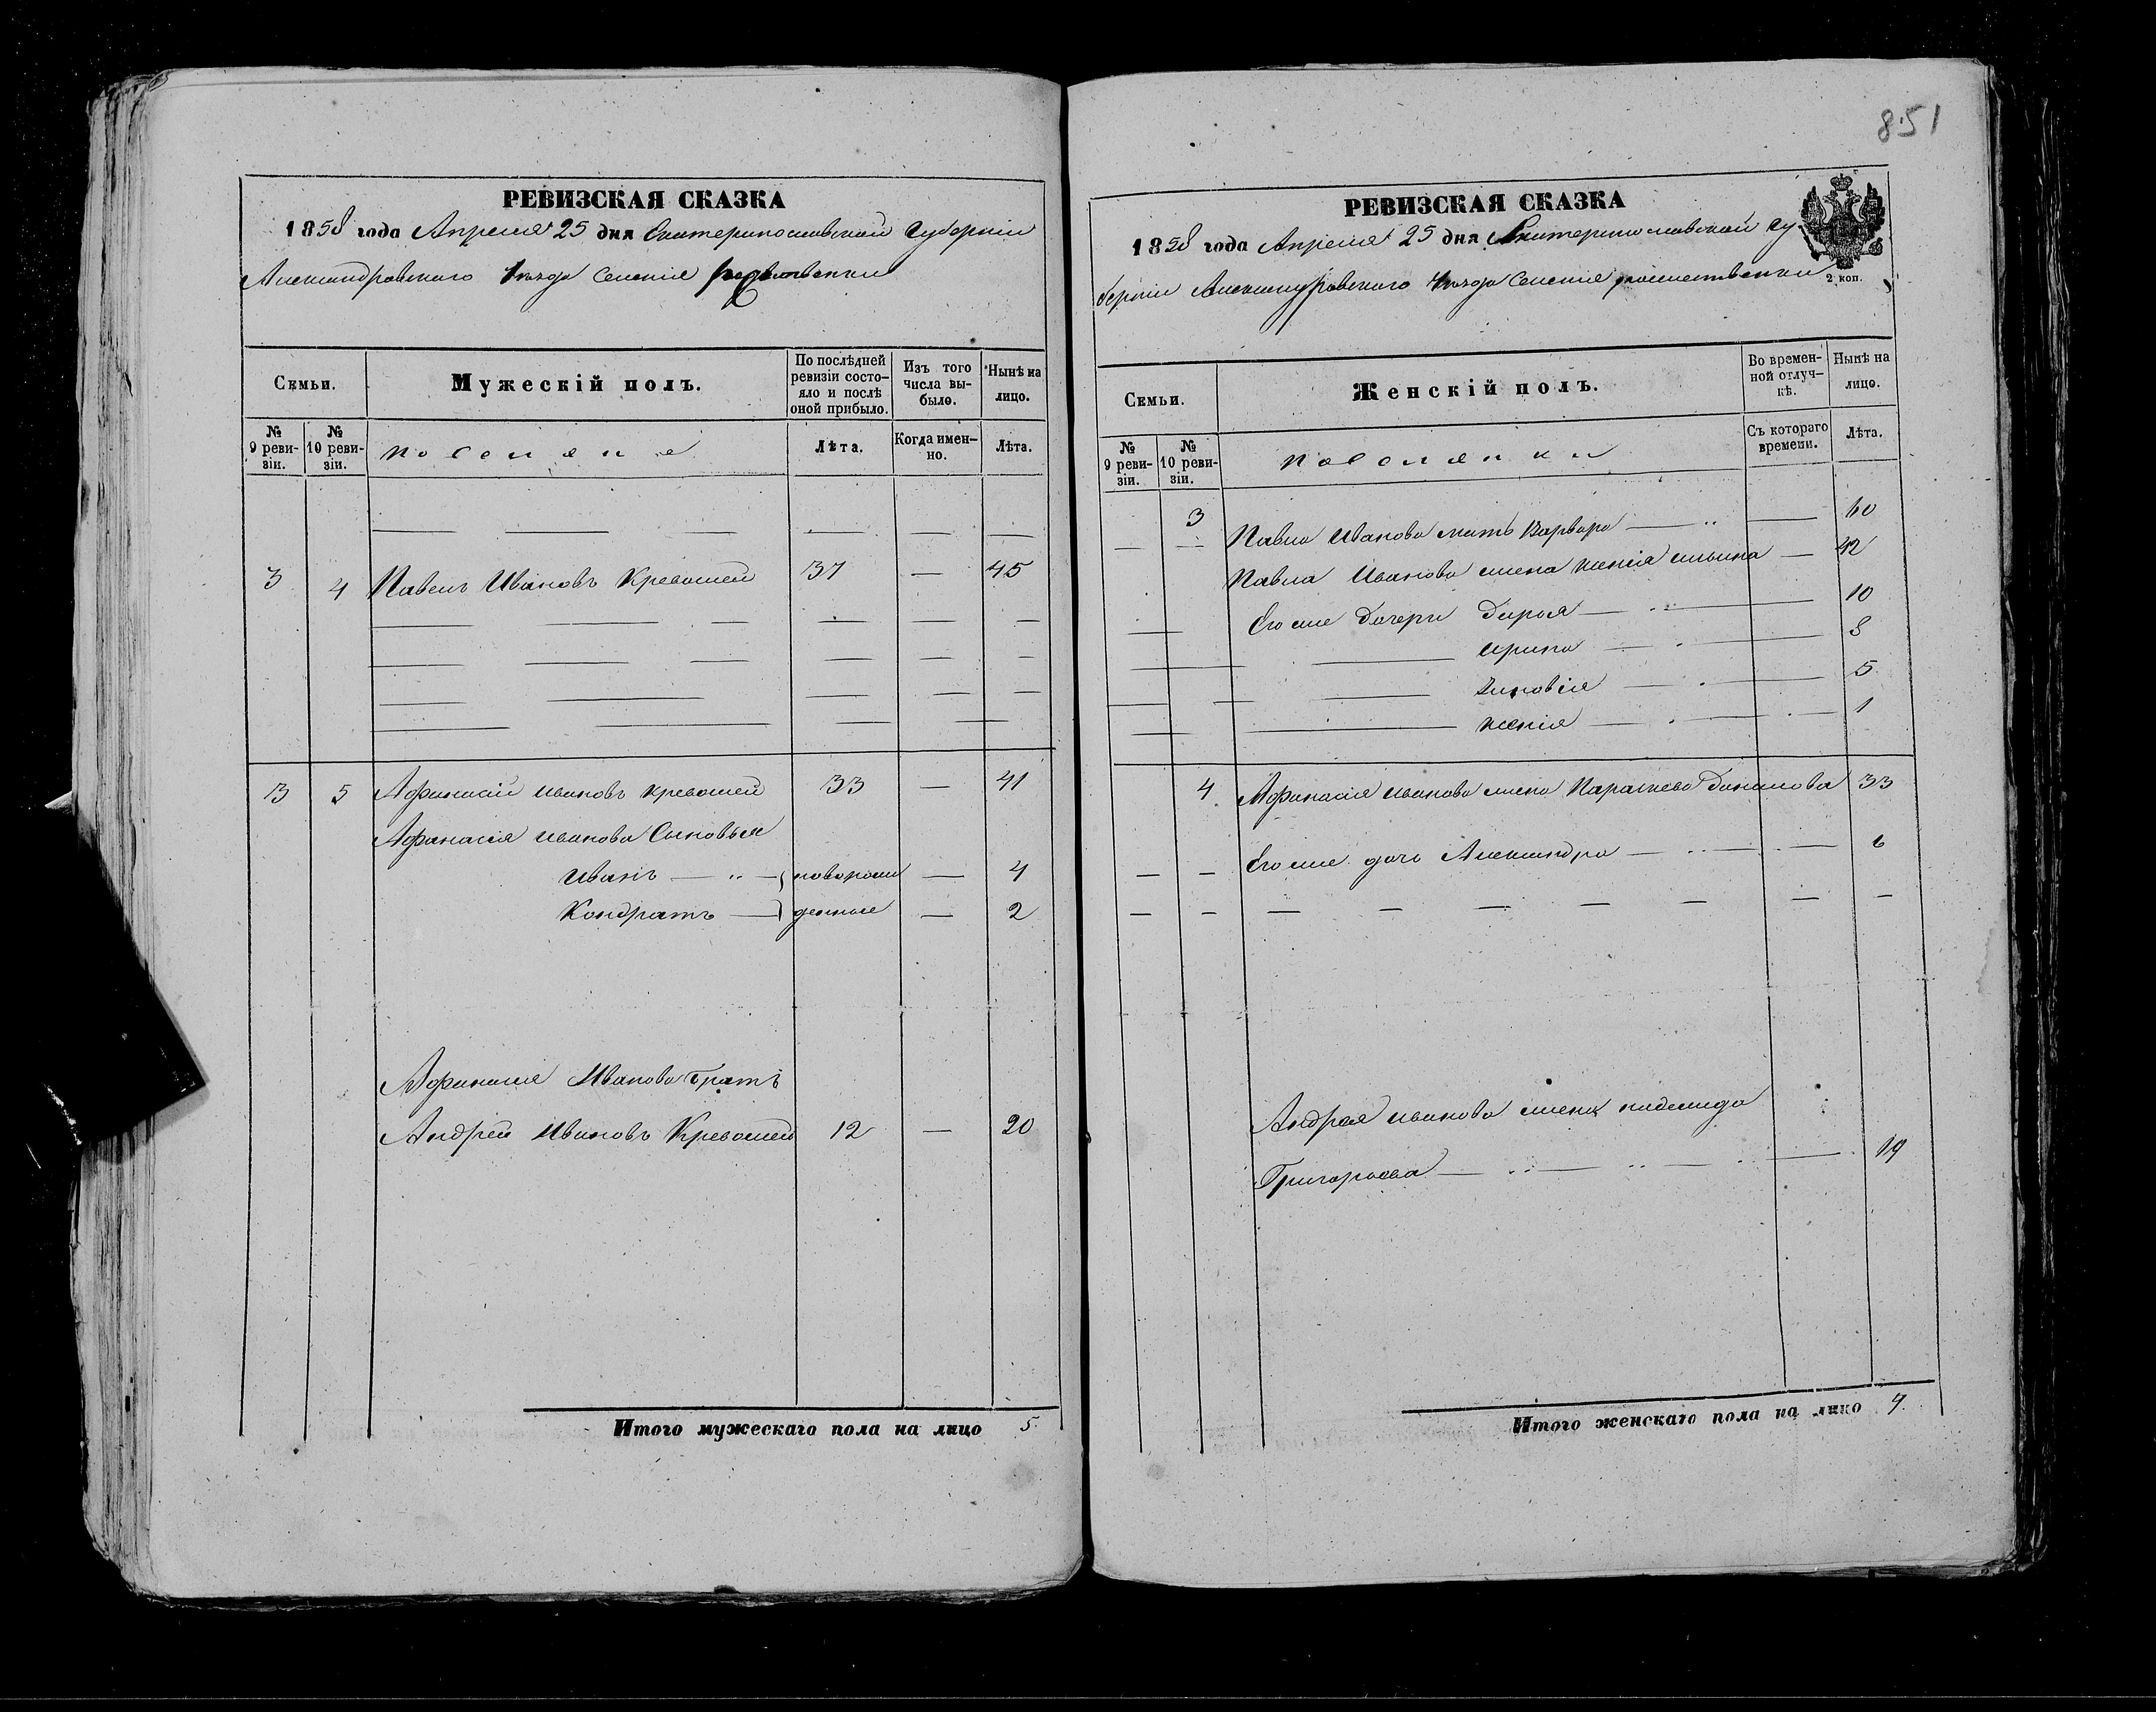 851
РЕВИЗСКАЯ СКАЗКА
1858 года Апреля 25 дня Екатеринославской Губернии
Александровского Уезда Селения
Семьи.
Мужескій полъ.
По послѣдней ревизіи состояло и послѣ оной прибыло.
Изъ того числа выбыло.
Нынѣ на лицо.
№ 9 ревизіи.
№ 10 ревизіи.
поселяне
Лѣта.
Когда именно.
Лѣта.
3 4 Павелъ Ивановъ Кревошей 37 — 45
3 5 Афанасій Ивановъ Кревошей 33 — 41
Афанасія Иванова Сыновья
Иванъ — новорож — 4
Кондратъ — денные — 2
Афанасія Иванова братъ
Андрей Ивановъ Кревошей 12 — 20
Итого мужескаго пола на лицо 5
РЕВИЗСКАЯ СКАЗКА
1858 года Апреля 25 дня Екатеринославской Гу
берніи Александровского Уезда Селения
2 коп.
Семьи.
Женскій полъ.
Во временной отлучкѣ.
Нынѣ на лицо.
№ 9 ревизіи.
№ 10 ревизіи.
поселянки
Съ котораго времени.
Лѣта.
3 Павла Иванова мать Варвара — 60
Павла Иванова жена Ксенія Ильина — 42
Его же дочери Дарья — 10
Ирина — 8
Зиновія — 5
Ксенія — 1
4 Афанасія Иванова жена Параскева Данилова 33
Его же дочь Александра — 6
Андрея Иванова жена
Григорьева — 19
Итого женскаго пола на лицо 9